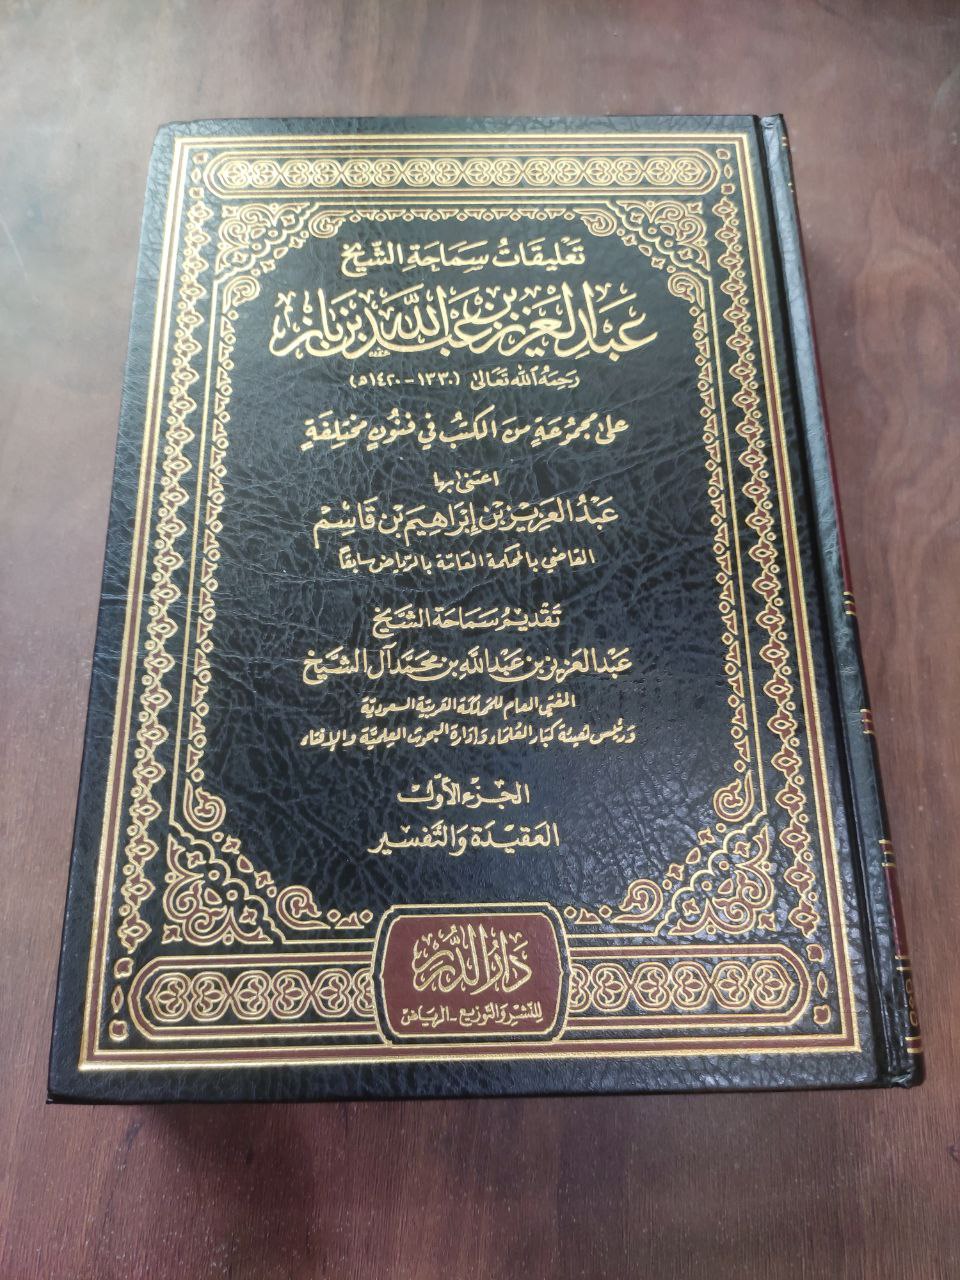 تَعْلِيقَاتُ سَمَاحَةِ الشَّيْخِ
عَبْدِ الْعَزِيزِ بْنِ عَبْدِ اللَّهِ بْنِ بَازٍ
رَحِمَهُ اللَّهُ تَعَالَىٰ (١٣٣٠ - ١٤٢٠هـ)
عَلَىٰ مَجْمُوعَةٍ مِنَ الْكُتُبِ فِي فُنُونٍ مُخْتَلِفَةٍ
اعتنى بها
عَبْدُ الْعَزِيزِ بْنُ إِبْرَاهِيمَ بْنِ قَاسِمٍ
القاضي بالمحكمة العامة بالرياض سابقًا
تَقْدِيمُ سَمَاحَةِ الشَّيْخِ
عَبْدِ الْعَزِيزِ بْنِ عَبْدِ اللَّهِ بْنِ مُحَمَّدٍ آلِ الشَّيْخِ
المفتي العام للمملكة العربية السعودية
ورئيس لهيئة كبار العلماء وإدارة البحوث العلمية والإفتاء
الجُزْءُ الْأَوَّلُ
العَقِيدَةُ وَالتَّفْسِيرُ
دَارُ الدُّرَرِ
للنشر والتوزيع - الرياض